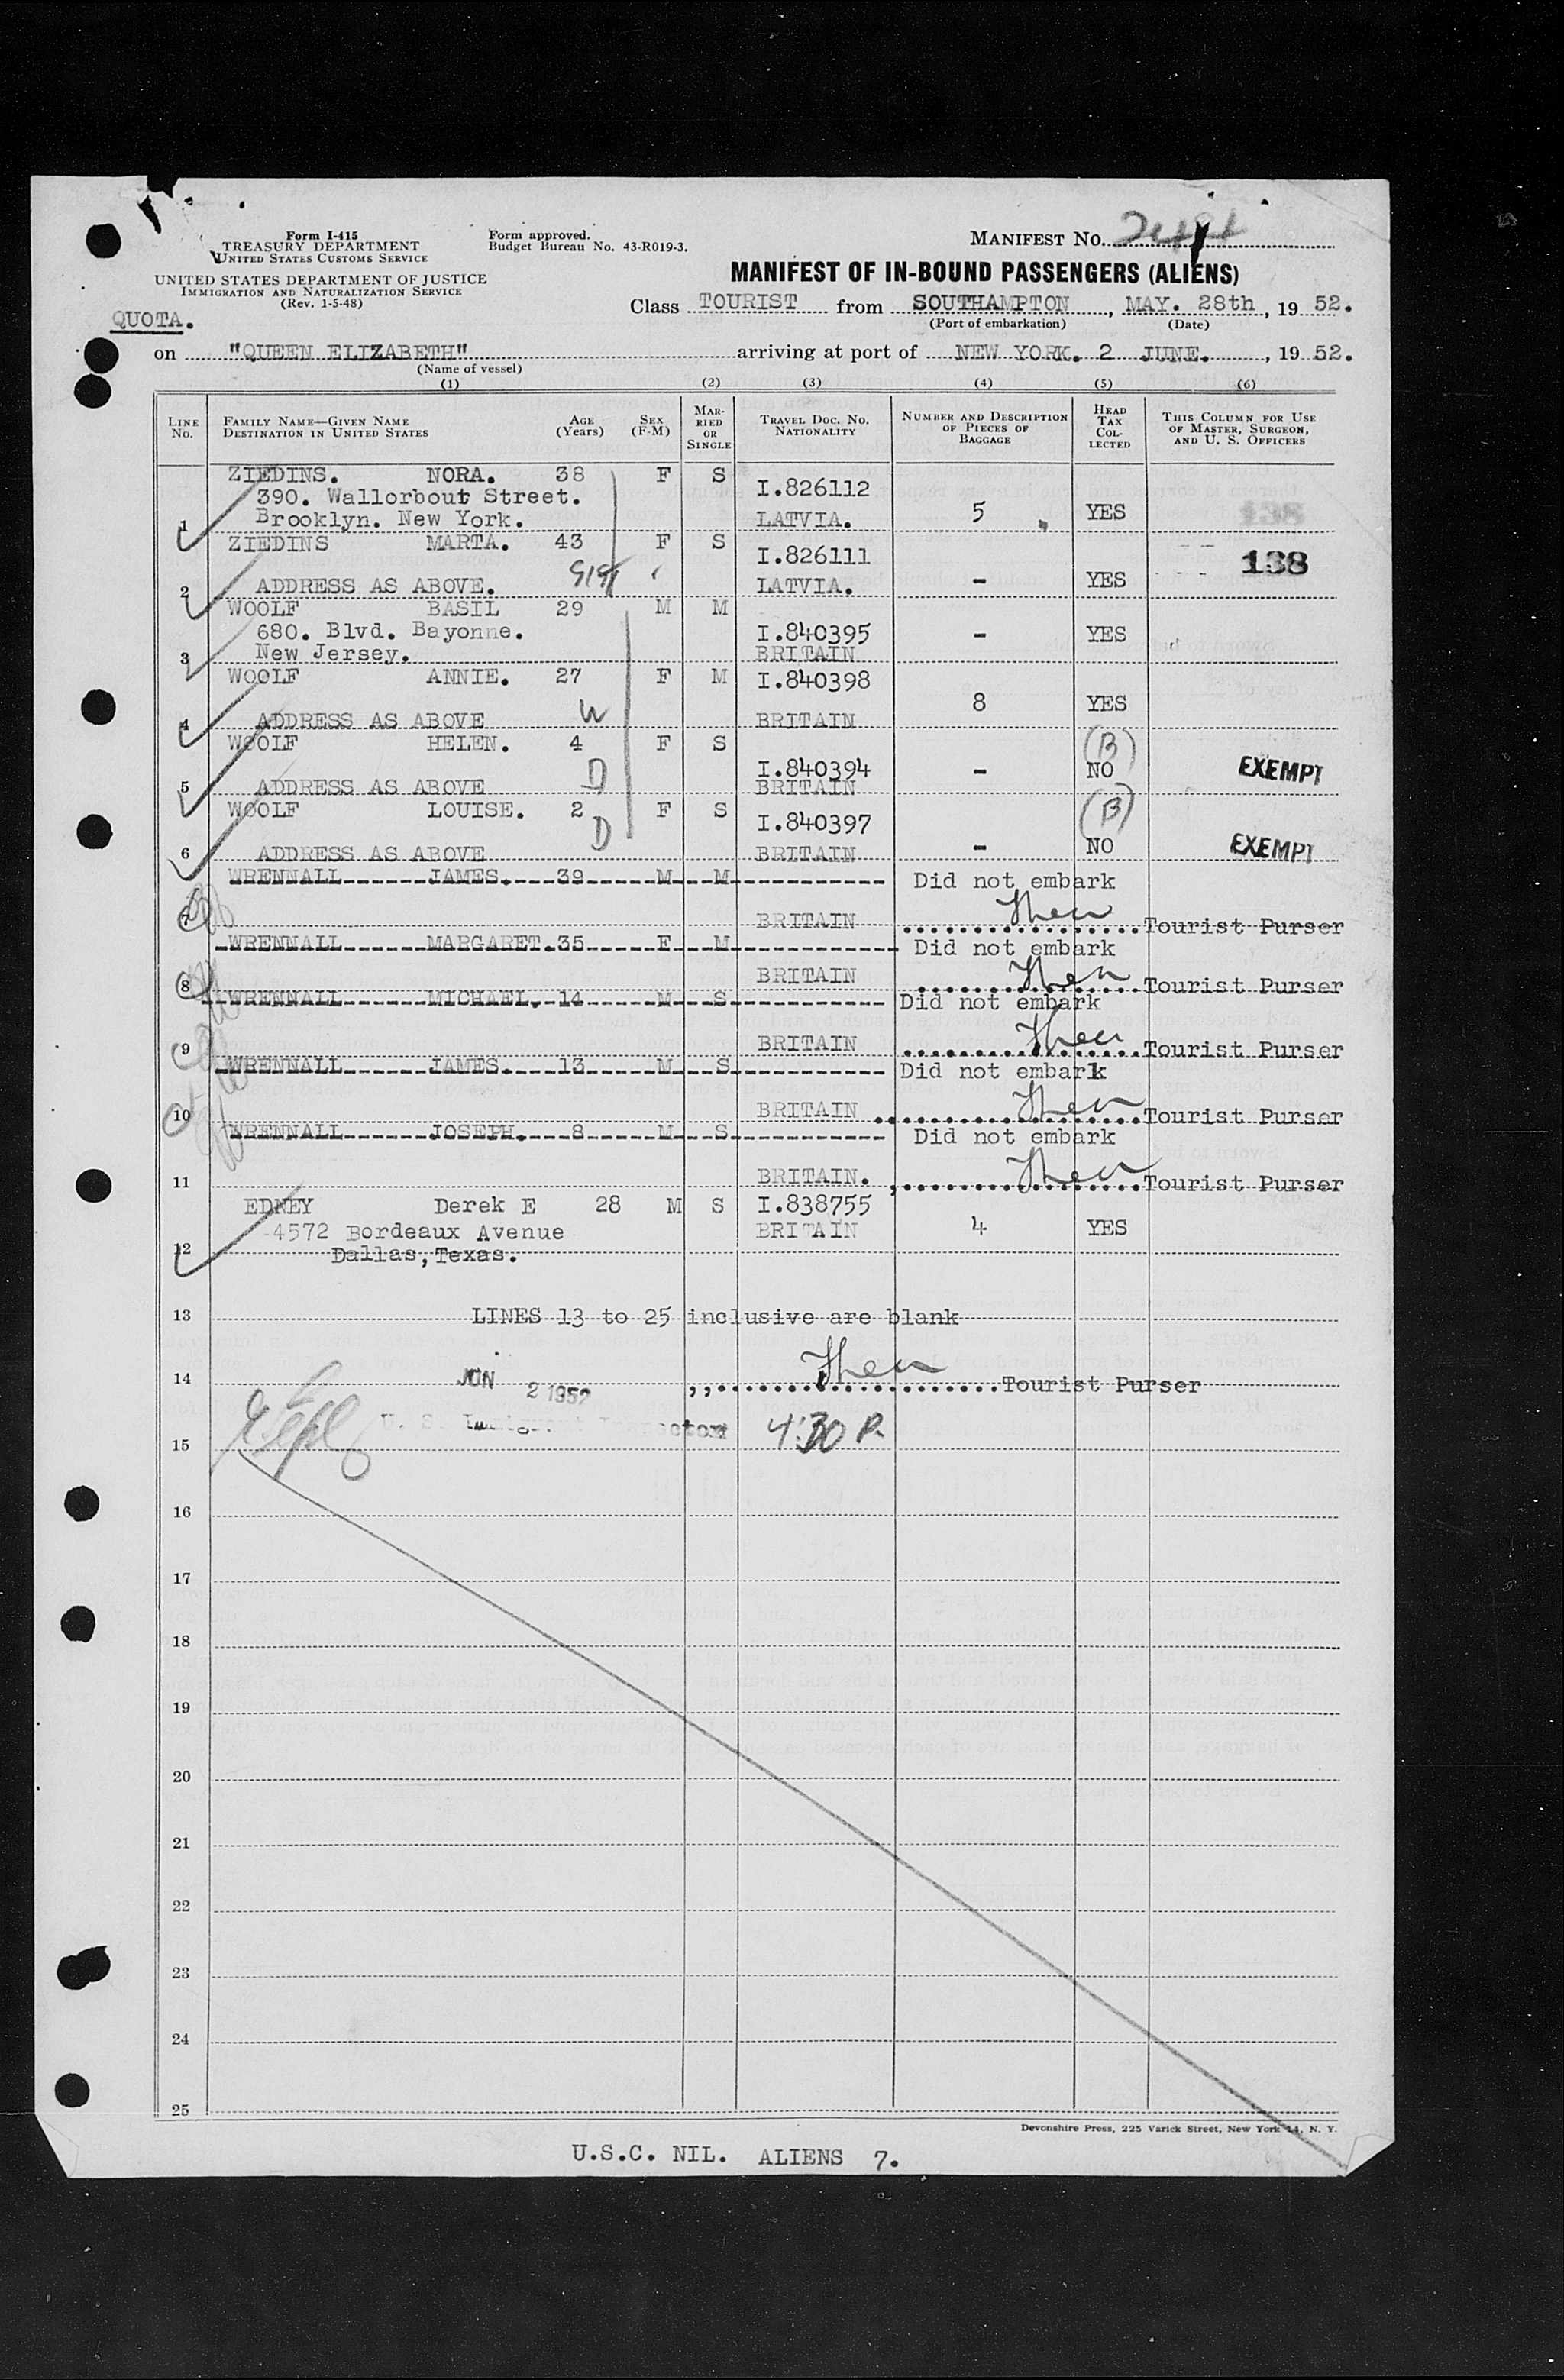 Form I-415
TREASURY DEPARTMENT
UNITED STATES CUSTOMS SERVICE
UNITED STATES DEPARTMENT OF JUSTICE
IMMIGRATION AND NATURALIZATION SERVICE
(Rev. 1-5-48)
Form approved.
Budget Bureau No. 43-R019-3.
MANIFEST NO.
MANIFEST OF IN-BOUND PASSENGERS (ALIENS)
QUOTA.
Class TOURIST from SOUTHAMPTON, MAY. 28th, 19 52.
(Port of embarkation) (Date)
on "QUEEN ELIZABETH" arriving at port of NEW YORK. 2 JUNE., 19 52.
(Name of vessel)
(1) (2) (3) (4) (5) (6)
LINE NO.
FAMILY NAME—GIVEN NAME DESTINATION IN UNITED STATES
AGE (Years)
SEX (F-M)
MARRIED OR SINGLE
TRAVEL DOC. NO. NATIONALITY
NUMBER AND DESCRIPTION OF PIECES OF BAGGAGE
HEAD TAX COLLECTED
THIS COLUMN FOR USE OF MASTER, SURGEON, AND U. S. OFFICERS
ZIEDINS. NORA. 38 F S I.826112
390. Wallorbout Street.
1 Brooklyn. New York. LATVIA. 5 YES 138
ZIEDINS MARTA. 43 F S I.826111 138
2 ADDRESS AS ABOVE. LATVIA. - YES
WOOLF BASIL 29 M M
680. Blvd. Bayonne. I.840395 - YES
3 New Jersey. BRITAIN
WOOLF ANNIE. 27 F M I.840398
8 YES
4 ADDRESS AS ABOVE W BRITAIN
WOOLF HELEN. 4 F S (B)
I.840394 - NO EXEMPT
5 ADDRESS AS ABOVE D BRITAIN
WOOLF LOUISE. 2 F S I.840397 (B)
6 ADDRESS AS ABOVE D BRITAIN - NO EXEMPT
WRENNALL JAMES. 39 M M Did not embark
7 BRITAIN Tourist Purser
WRENNALL MARGARET. 35 F M Did not embark
8 BRITAIN Tourist Purser
WRENNALL MICHAEL. 14 M S Did not embark
9 BRITAIN Tourist Purser
WRENNALL JAMES. 13 M S Did not embark
10 BRITAIN Tourist Purser
WRENNALL JOSEPH. 8 M S Did not embark
11 BRITAIN. Tourist Purser
EDNEY Derek E 28 M S I.838755
4572 Bordeaux Avenue BRITAIN 4 YES
12 Dallas, Texas.
13 LINES 13 to 25 inclusive are blank
14 JUN 2 1952 Tourist Purser
15 4:30 P.
16
17
18
19
20
21
22
23
24
25
Devonshire Press, 225 Varick Street, New York 14, N. Y.
U.S.C. NIL. ALIENS 7.